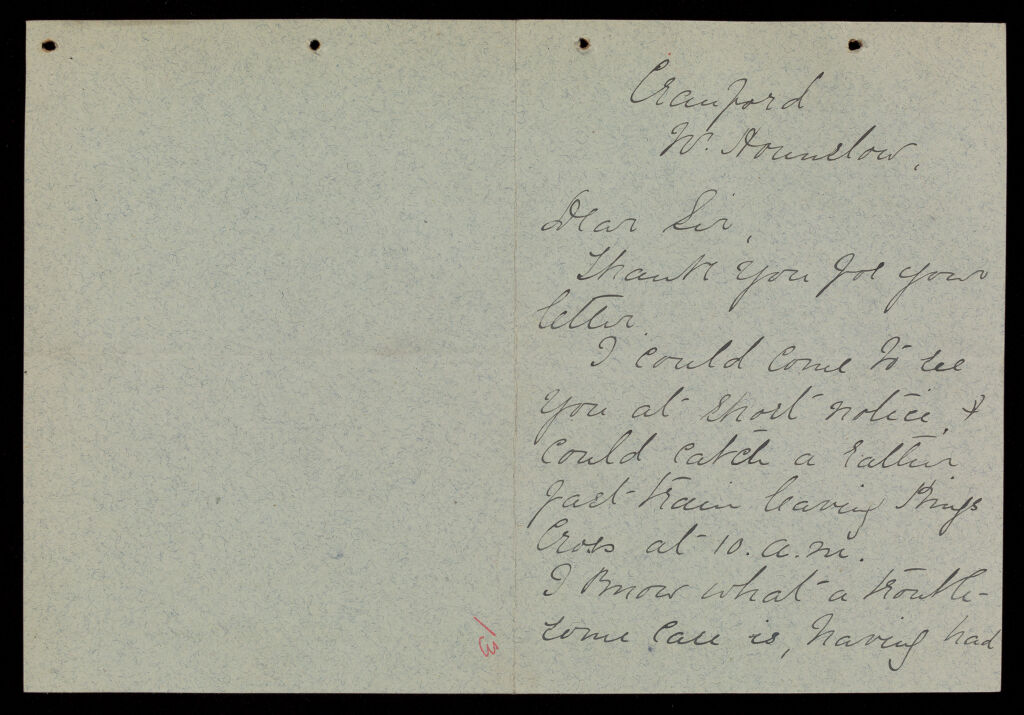 Cranford
Nr. Hounslow,
Dear Sir,
Thank you for your
letter.
I could come to see
you at short notice, &
could catch a rather
fast train leaving Kings
Cross at 10. a.m.
I know what a trouble-
some case is, having had